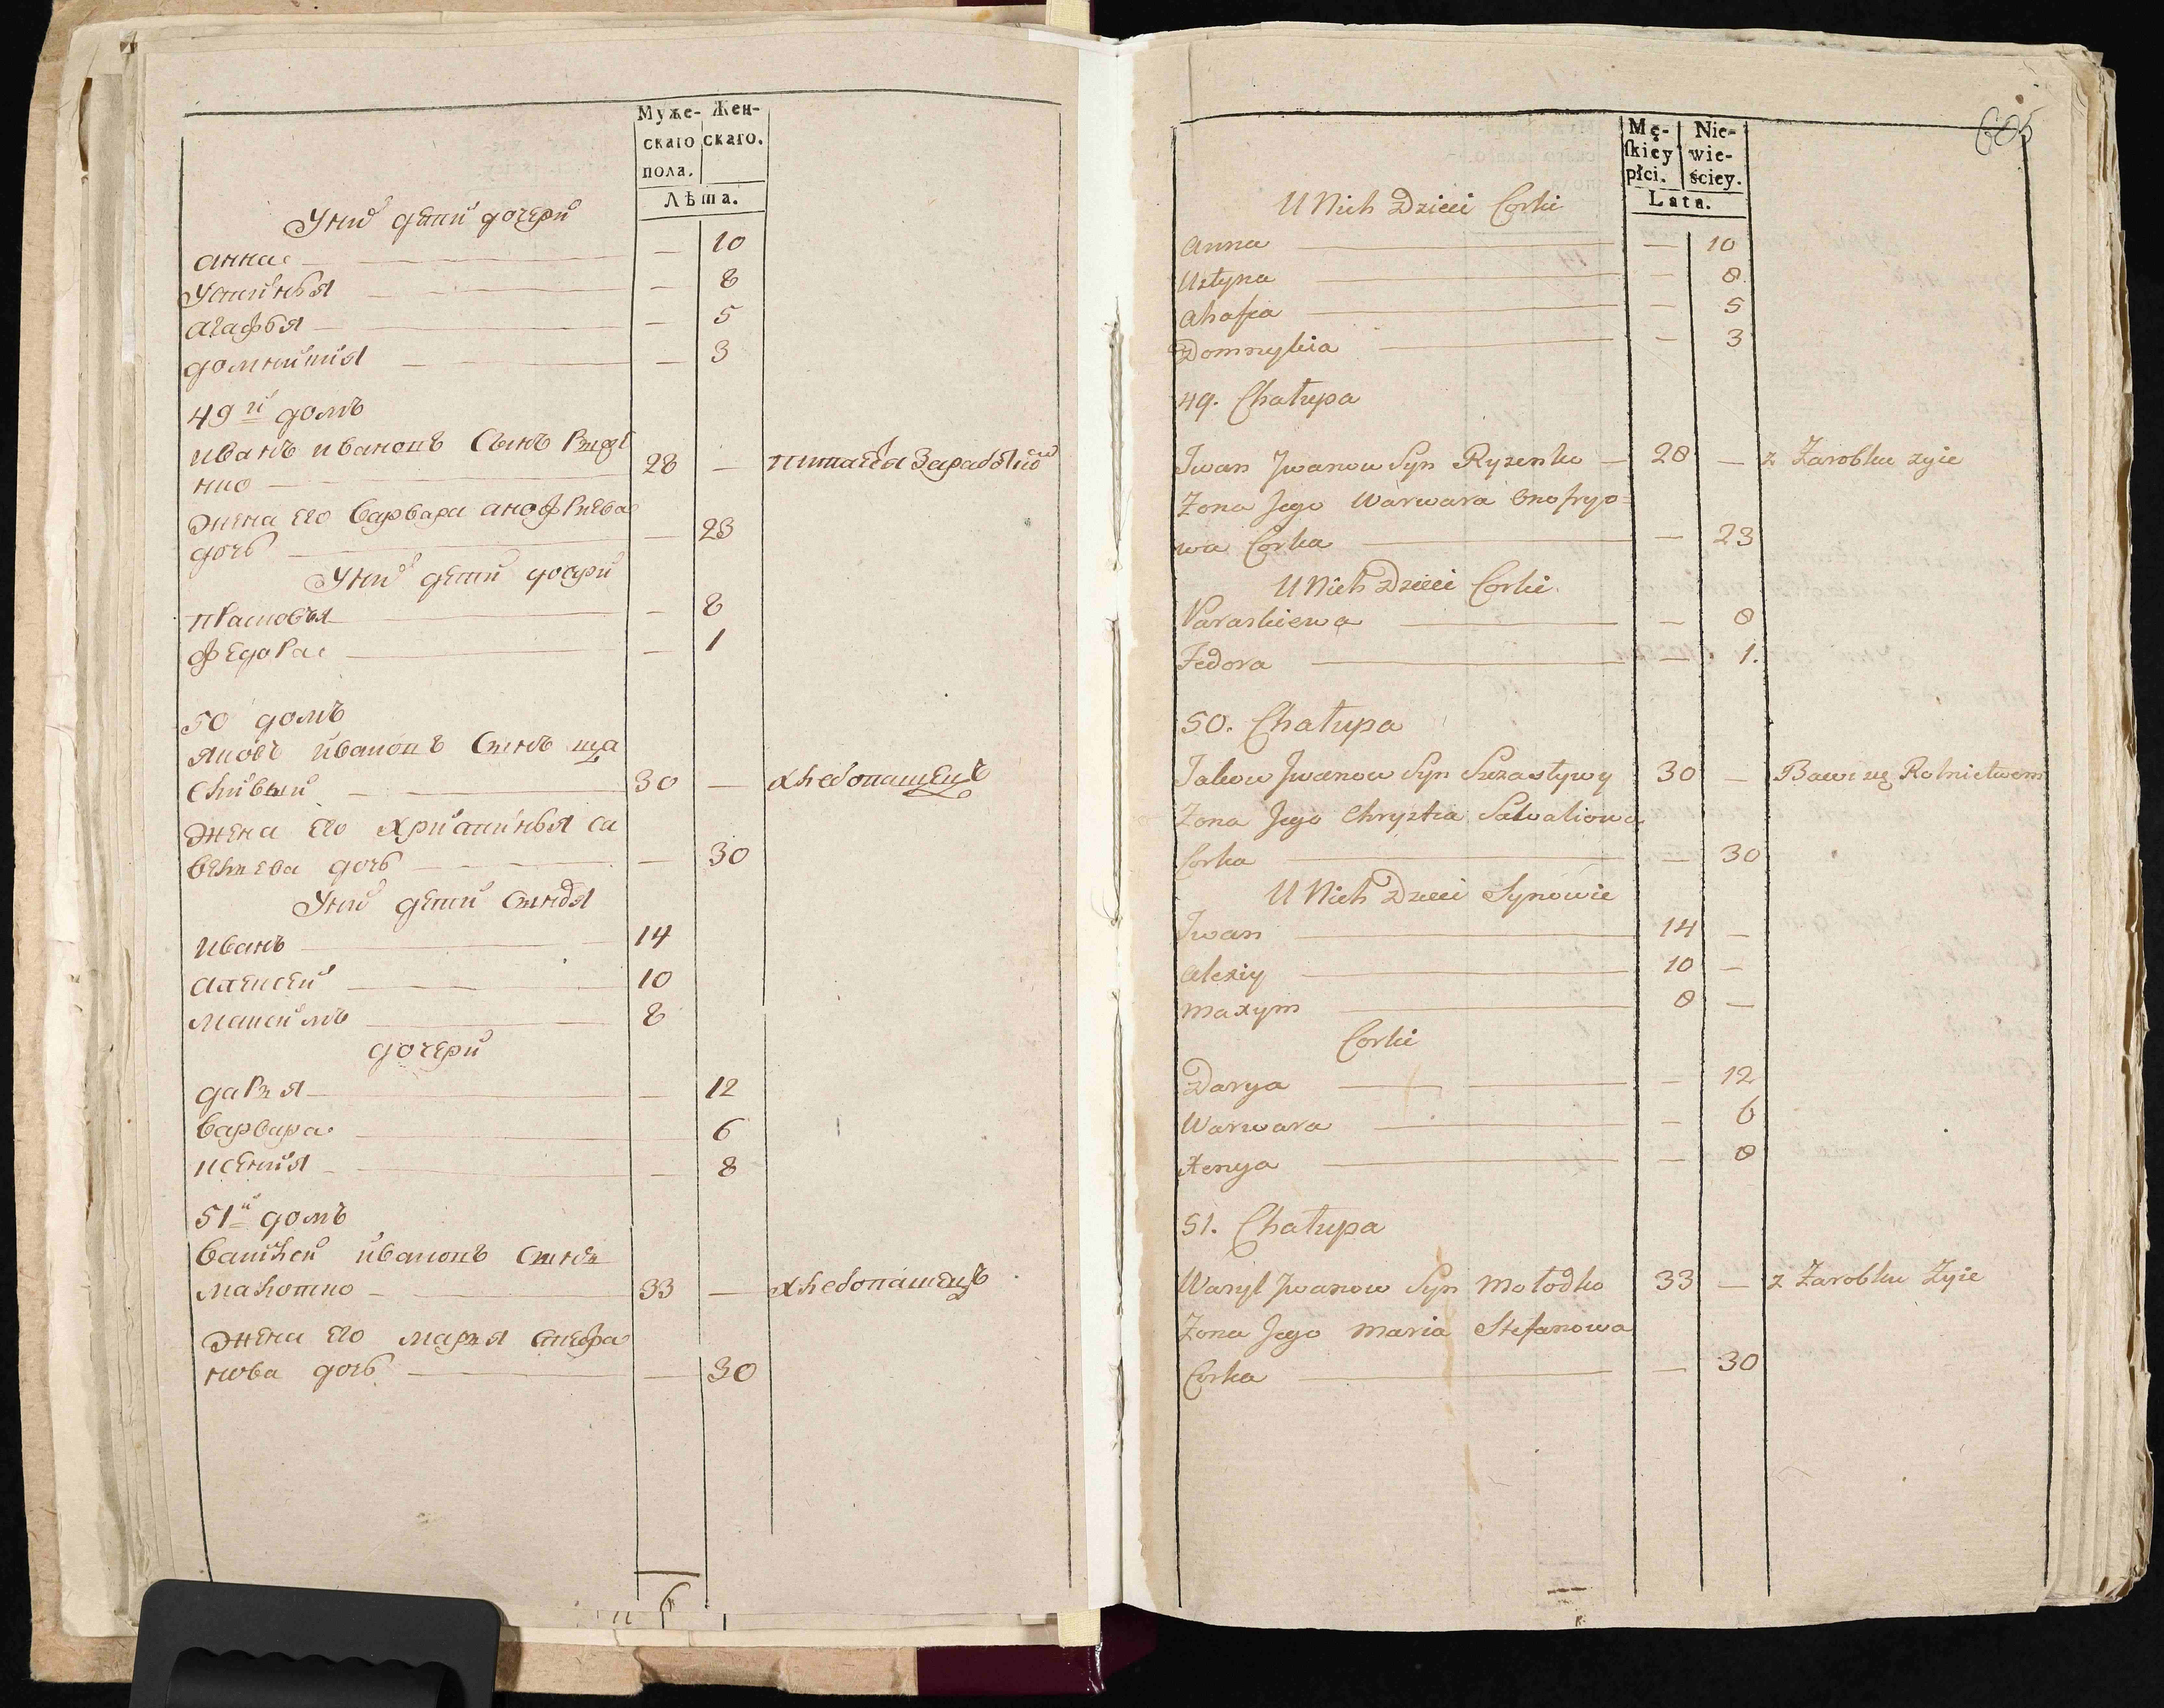 Муже- Жен-
скаго скаго.
пола.
Лѣта.
У них дети дочери
анна — — 10
Устинья — — 8
агафья — — 5
домникия — — 3
49й домъ
иванъ ивановъ сынъ
28 — питается заработкою
жена его варвара анофриева
дочь — — 23
У них дети дочери
прасковья — — 8
федора — — 1
50 домъ
яковъ ивановъ сынъ ща
сливый — 30 — хлебопашецъ
жена его християнья са
вельева дочь — — 30
У них дети сыновья
иванъ — 14
алексей — 10
максимъ — 8
дочери
дарья — — 12
варвара — 6
ксения — — 8
51й домъ
василей ивановъ сынъ
малотко — 33 — хлебопашецъ
жена его марья стефа
нова дочь — — 30
605
Mę- Nie-
ſkiey wie-
płci. ściey.
Lata.
U Nich Dzieci Corki
Anna — — 10
Ustyna — — 8
Ahafia — — 5
Domnykia — — 3
49. Chałupa
Iwan Iwanow Syn Ryzenko — 28 — z Zarobku zyie
Zona Jego Warwara Onofryo=
wa Corka — — 23
U Nich Dzieci Corki
Paraskiewa — — 8
Fedora — — 1.
50. Chałupa
Jakow Iwanow Syn Szczastywy 30 — Bawi się Rolnictwem
Zona Jego Chrystia
Corka — — 30
U Nich Dzieci Synowie
Iwan — 14 —
Alexiy — 10 —
Maxym — 8 —
Corki
Darya — — 12
Warwara — — 6
Xenya — — 8
51. Chałupa
Wasyl Iwanow Syn Mołodko 33 — z Zarobku Zyie
Zona Jego Maria Stefanowa
Corka — — 30